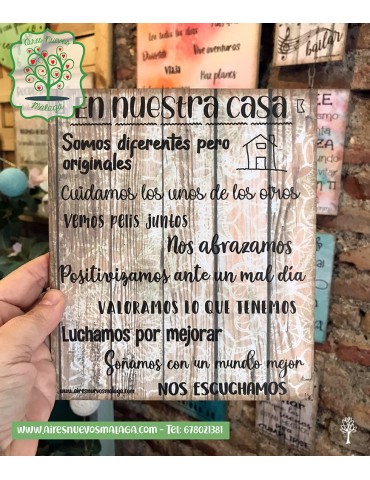 Aires Nuevos
Málaga
bailar
Vive aventuras
VIAJA
Haz planes
En nuestra casa
Somos diferentes pero
originales
Cuidamos los unos de los otros
Vemos pelis juntos
Nos abrazamos
Positivizamos ante un mal día
VALORAMOS LO QUE TENEMOS
Luchamos por mejorar
Soñamos con un mundo mejor
NOS ESCUCHAMOS
www.airesnuevosmalaga.com
www.airesnuevosmalaga.com - Tel: 678021381